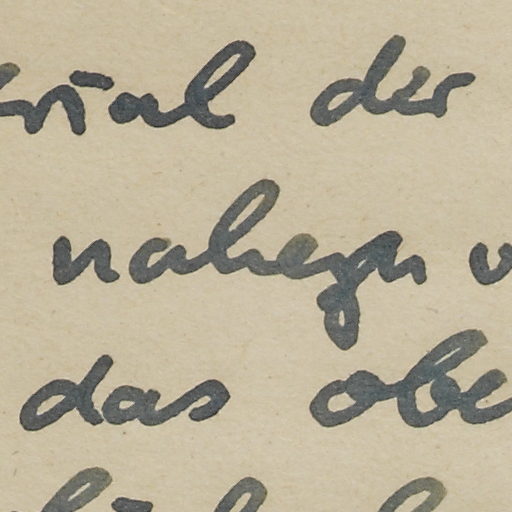 erial der
nahezu v
das obe